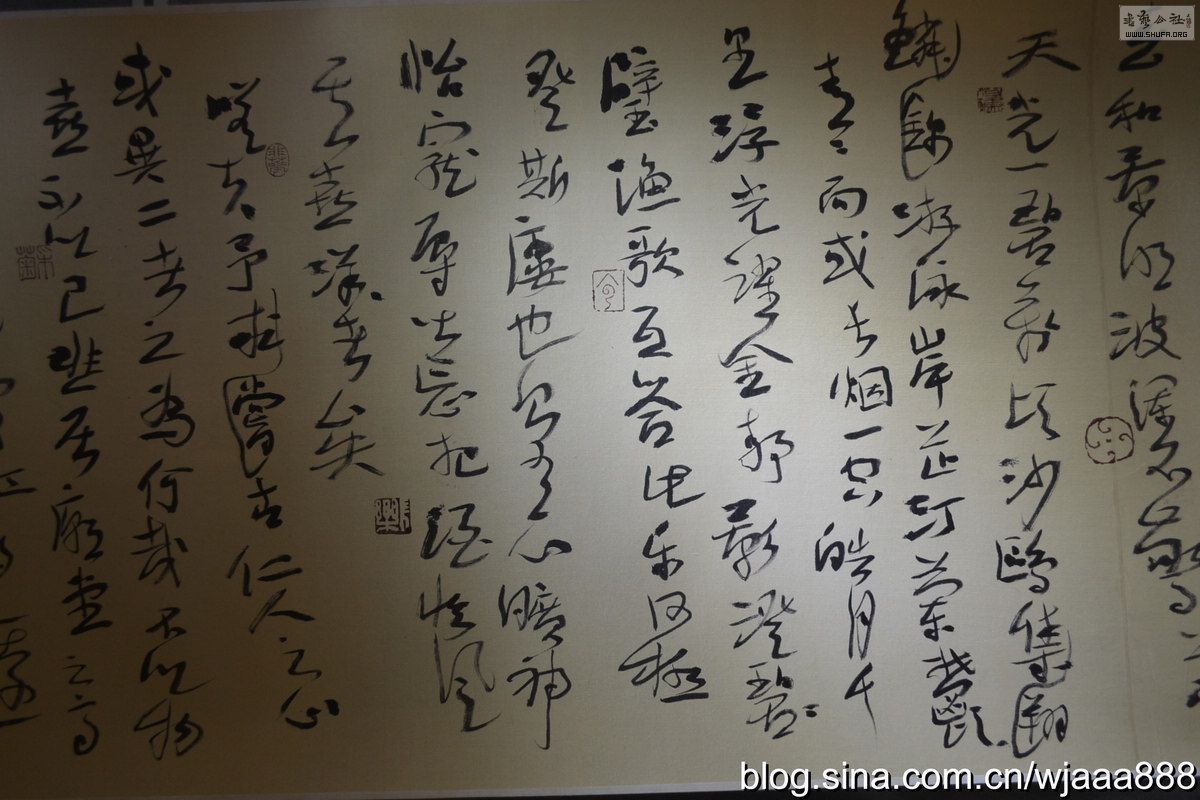 和景明波瀾不驚上
天光一碧萬頃沙鷗集翔
鱗錦游泳岸芷汀蘭鬱
青々而或長烟一空皓月千
里浮光躍金靜影澄碧
璧漁歌互答此樂何極
登斯樓也則有心曠神
怡寵辱皆忘把酒臨風
其喜洋々者矣
嗟夫予求嘗古仁人之心
或異二者之為何哉不以物
喜不以己悲居廟堂之高
書藝公社
WWW.SHUFA.ORG
blog.sina.com.cn/wjaaa888